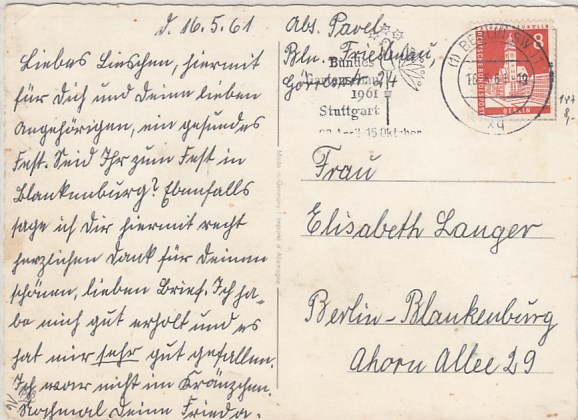 d. 16.5.61
Liebes Lieschen, hiermit
für Dich und Deine lieben
Angehörigen, ein gesundes
Fest. Seid Ihr zum Fest in
Blankenburg? Ebenfalls
sage ich Dir hiermit recht
herzlichen Dank für Deinen
schönen, lieben Brief. Ich ha-
be mich gut erholt und es
hat mir sehr gut gefallen.
Ich war nicht im Kränzchen.
Nochmal Deine Frieda.
Abs. Pavel
Bln. Friedenau
Bundes
Gartenschau
1961
Stuttgart
DEUTSCHE BUNDESPOST
BERLIN
8
Made in Germany
Frau
Elisabeth Langer
Berlin-Blankenburg
Ahorn Allee 29